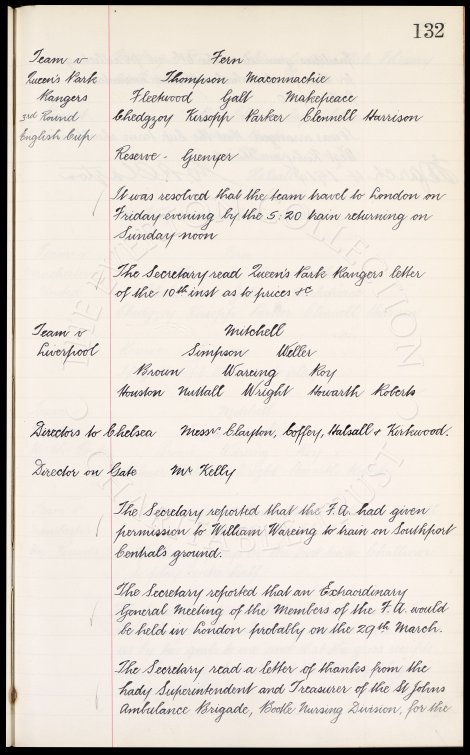 132
Team v Fern
Queen's Park Thompson Maconnachie
Rangers Fleetwood Galt Makepeace
3rd Round Chedgzoy Kirsopp Parker Clennell Harrison
English Cup
Reserve - Grenyer
It was resolved that the team travel to London on
Friday evening by the 5.20 train returning on
Sunday noon
The Secretary read Queen's Park Rangers letter
of the 10th inst as to prices &c
Team v Mitchell
Liverpool Simpson Weller
Brown Wareing Roy
Houston Nuttall Wright Howarth Roberts
Directors to Chelsea Messrs Clayton, Coffey, Halsall & Kirkwood.
Director on Gate Mr Kelly
The Secretary reported that the F.A. had given
permission to William Wareing to train on Southport
Central's ground.
The Secretary reported that an Extraordinary
General Meeting of the Members of the F.A. would
be held in London probably on the 29th March.
The Secretary read a letter of thanks from the
Lady Superintendent and Treasurer of the St Johns
Ambulance Brigade, Bootle Nursing Division, for the